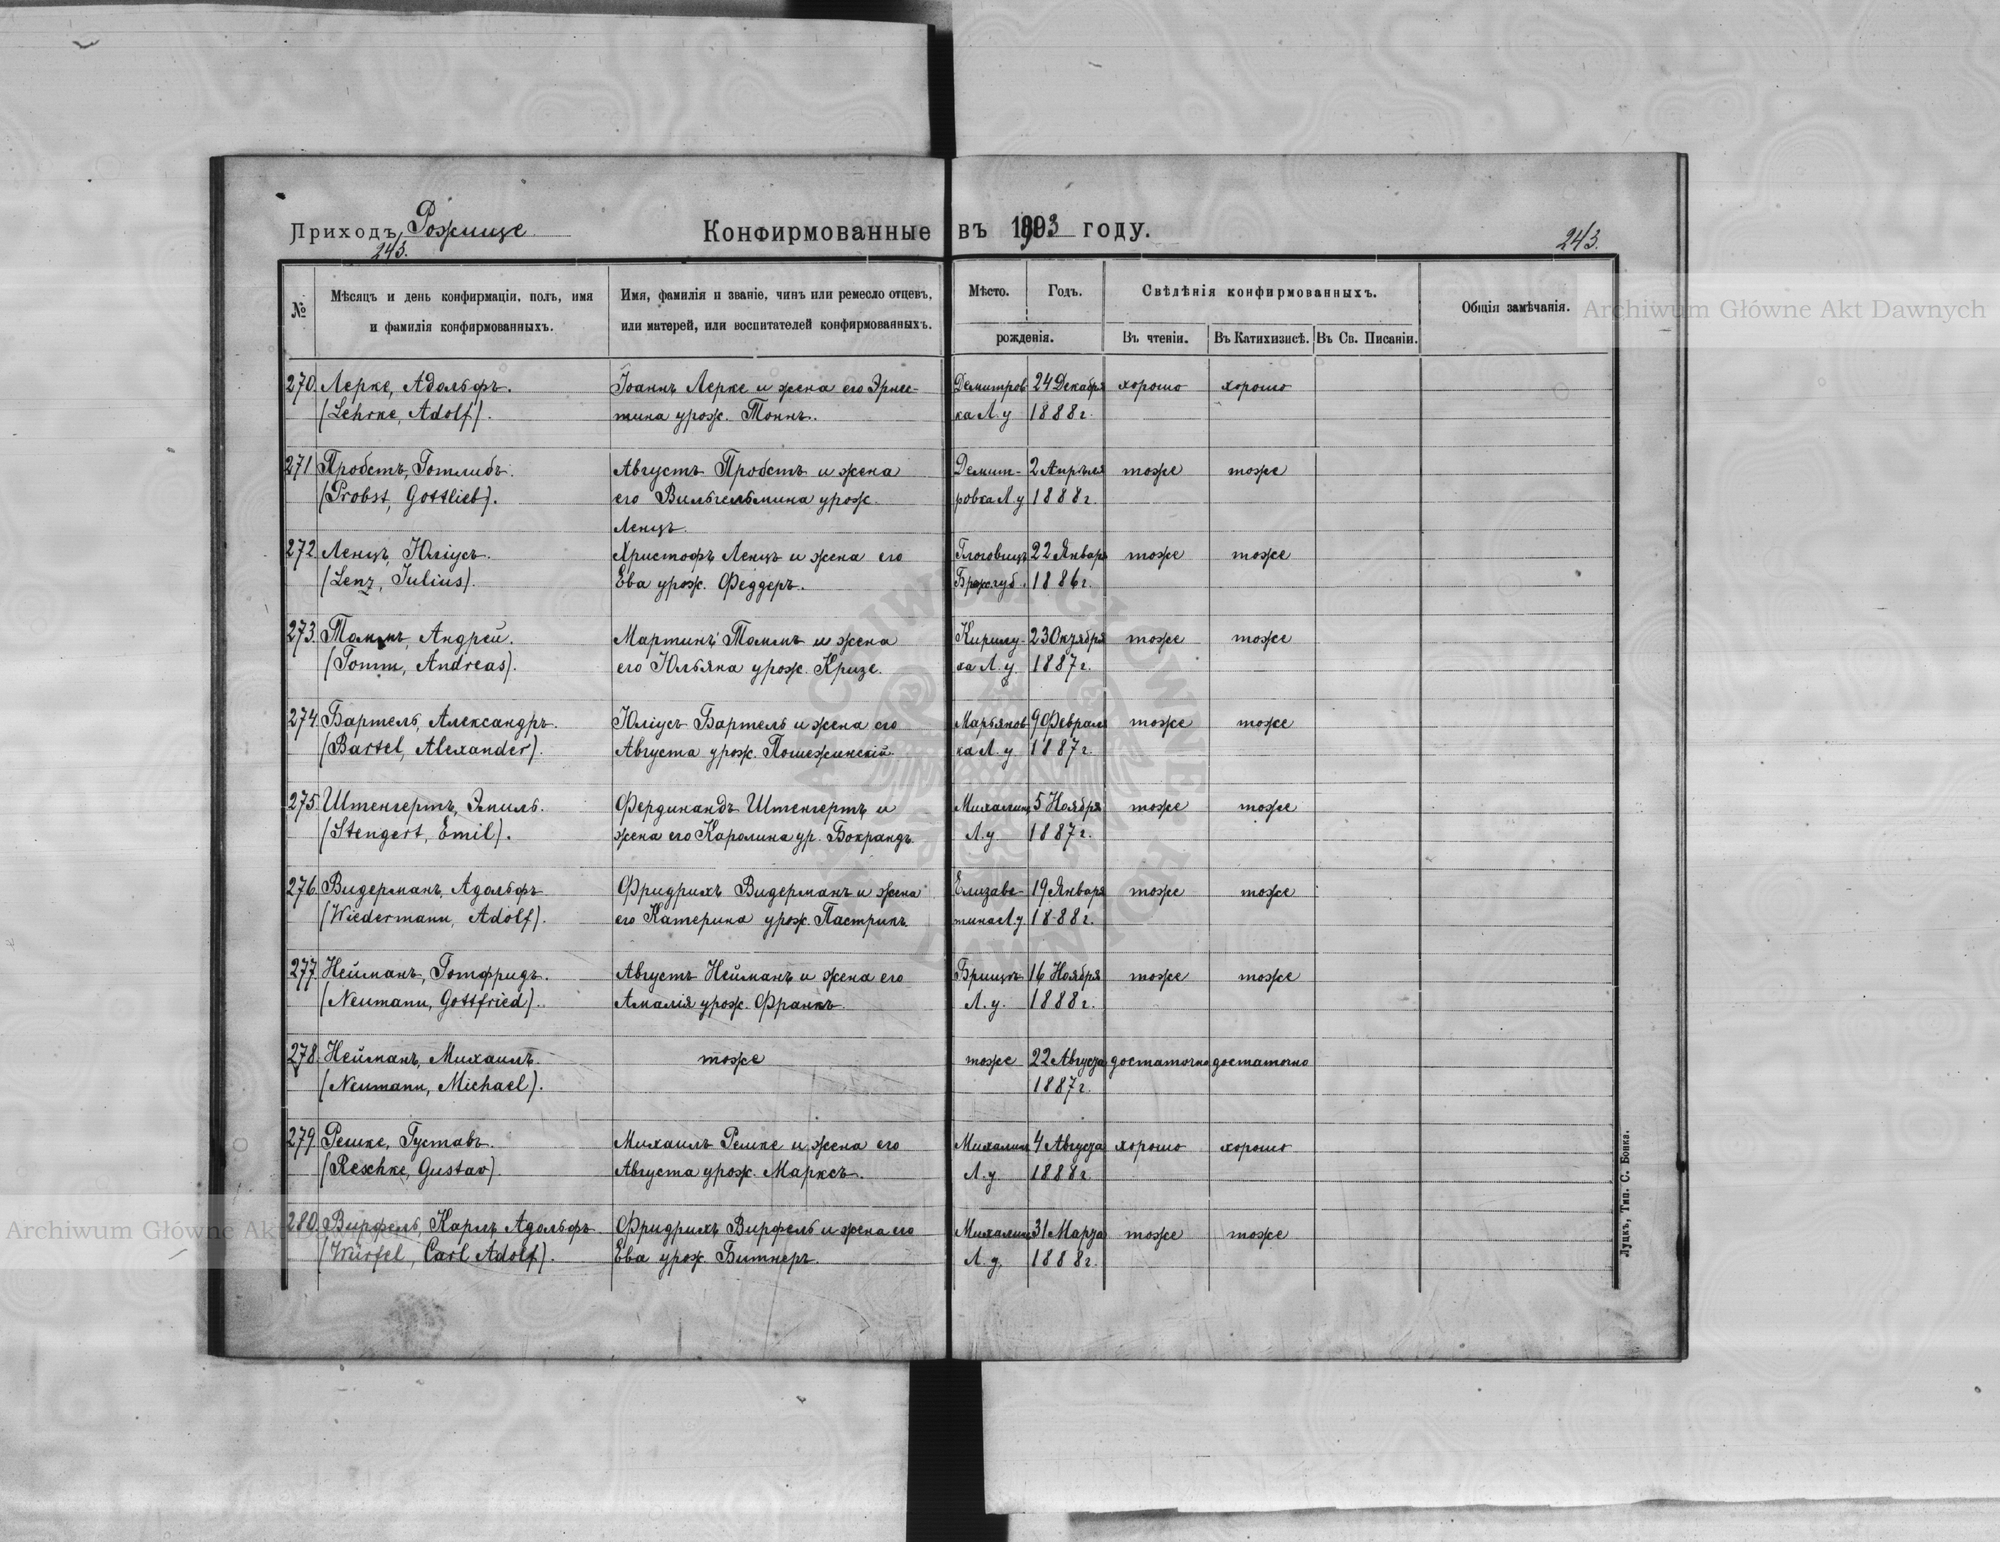 Приходъ Рожище
243.
Конфирмованные въ 1903 году.
243.
№
Мѣсяцъ и день конфирмаціи, полъ, имя
и фамилія конфирмованныхъ.
Имя, фамилія и званіе, чинъ или ремесло отцевъ,
или матерей, или воспитателей конфирмованныхъ.
Мѣсто.
Годъ.
рожденія.
Свѣдѣнія конфирмованныхъ.
Въ чтеніи.
Въ Катихизисѣ.
Въ Св. Писаніи.
Общія замѣчанія.
270. Лерке, Адольфъ. Іоаннъ Лерке и жена его Эрнес- Демитров 24 Декабря хорошо хорошо
(Lehrke, Adolf). тина урож. Тоннъ. ка Л. у 1888 г.
271 Пробстъ, Готлибъ. Августъ Пробстъ и жена Демит- 2 Апрѣля тоже тоже
(Probst, Gottlieb). его Вильгельмина урож. ровка Л. у 1888 г.
Ленцъ.
272. Ленцъ, Юліусъ. Христофъ Ленцъ и жена его 22 Января тоже тоже
(Lenz, Julius). Ева урож. Феддеръ. 1886 г.
273. Томмъ, Андрей. Мартинъ Томмъ и жена 23 Октября тоже тоже
(Tomm, Andreas). его Юльяна урож. Кризе. ка Л. у. 1887 г.
274. Бартель, Александръ. Юліусъ Бартель и жена его Марьянов 9 Февраля тоже тоже
(Bartel, Alexander). Августа урож. ка Л. у 1887 г.
275. Штенгертъ, Эмиль. Фердинандъ Штенгертъ и Михалин 5 Ноября тоже тоже
(Stengert, Emil). жена его Каролина ур. Бокрандъ. Л. у 1887 г.
276. Видерманъ, Адольфъ. Фридрихъ Видерманъ и жена Елизаве- 19 Января тоже тоже
(Wiedermann, Adolf). его Катерина урож. Пастрикъ. тина Л. у. 1888 г.
277. Нейманъ, Готфридъ. Августъ Нейманъ и жена его Брищъ 16 Ноября тоже тоже
(Neumann, Gottfried). Амалія урож. Франкъ. Л. у. 1888 г.
278. Нейманъ, Михаилъ. тоже тоже 22 Августа достаточно достаточно
(Neumann, Michael). 1887 г.
279. Решке, Густавъ. Михаилъ Решке и жена его Михалин 4 Августа хорошо хорошо
(Reschke, Gustav). Августа урож. Марксъ. Л. у. 1888 г.
280. Вирфель, Карлъ Адольфъ. Фридрихъ Вирфель и жена его Михалин 31 Марта тоже тоже
(Würfel, Carl Adolf). Ева урож. Битнеръ. Л. у. 1888 г.
Луцкъ, Тип. С. Бонка.
Archiwum Główne Akt Dawnych
Archiwum Główne Akt Dawnych
ARCHIWUM GŁÓWNE AKT DAWNYCH